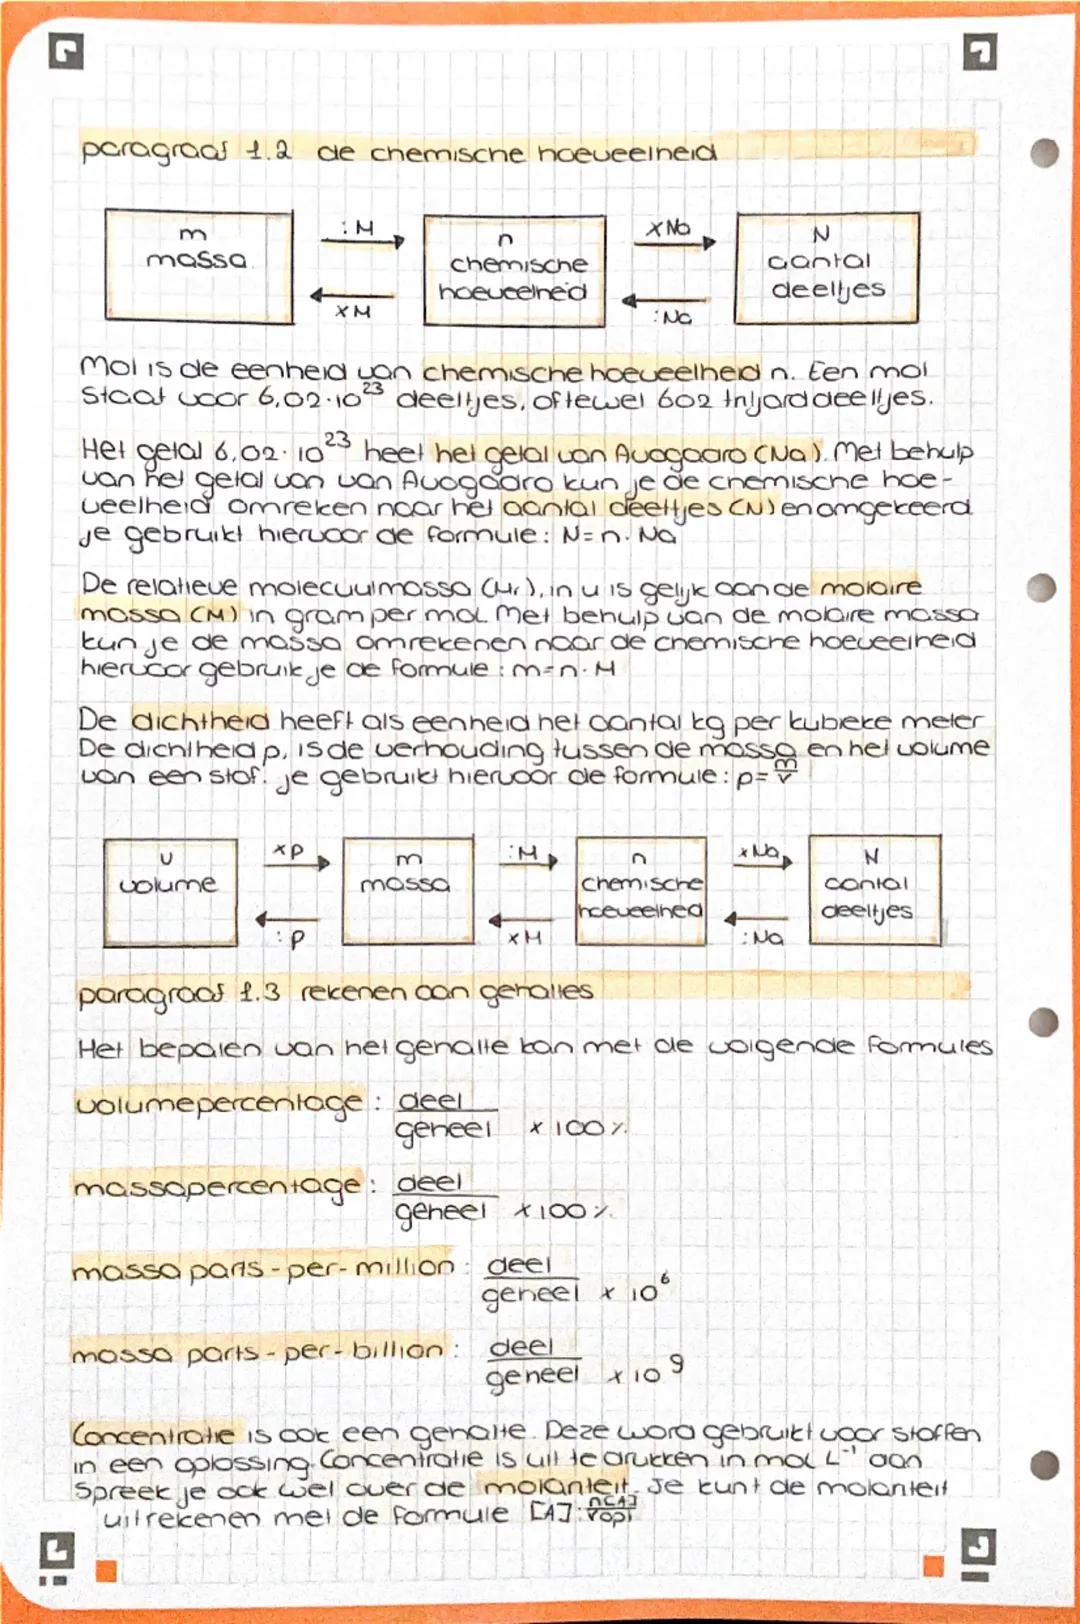 paragraaf 1.2 de chemische hoeveelheid
m massa
: M
x M
n chemische hoeveelheid
x Na
: Na
N aantal deeltjes
Mol is de eenheid van chemische hoeveelheid n. Een mol
staat voor 6,02·10²³ deeltjes, oftewel 602 triljard deeltjes.
Het getal 6,02·10²³ heet het getal van Avogadro (Na). Met behulp
van het getal van van Avogadro kun je de chemische hoe-
veelheid omreken naar het aantal deeltjes (N) en omgekeerd
je gebruikt hiervoor de formule: N=n·Na
De relatieve molecuulmassa (Mr), in u is gelijk aan de molaire
massa (M) in gram per mol. Met behulp van de molaire massa
kun je de massa omrekenen naar de chemische hoeveelheid
hiervoor gebruik je de formule: m=n·M
De dichtheid heeft als eenheid het aantal kg per kubieke meter
De dichtheid p, is de verhouding tussen de massa en het volume
van een stof. je gebruikt hiervoor de formule: p= m/v
v volume
x p
: p
m massa
: M
x M
n chemische hoeveelheid
x Na
: Na
N aantal deeltjes
paragraaf 1.3 rekenen aan gehaltes
Het bepalen van het gehalte kan met de volgende formules
volumepercentage: deel
geheel x 100%
massapercentage: deel
geheel x 100%
massa parts-per-million: deel
geheel x 10⁶
massa parts-per-billion: deel
geheel x 10⁹
Concentratie is ook een gehalte. Deze word gebruikt voor stoffen
in een oplossing. Concentratie is uit te drukken in mol L⁻¹ dan
spreek je ook wel over de molariteit. Je kunt de molariteit
uitrekenen met de formule [A]: n[A]/Vopl